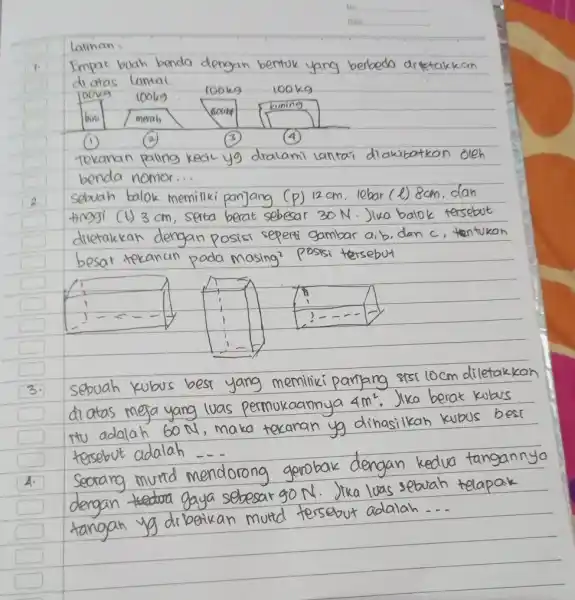 Latihan.
1. Empat buah benda dengan bentuk yang berbeda diletakkan
di atas lantai
100kg 100kg 100kg 100kg
biru merah kuning
1 2 3 4
Tekanan paling kecil yg dialami lantai diakibatkan oleh
benda nomor...
2. Sebuah balok memiliki panjang (p) 12 cm, lebar (l) 8cm, dan
tinggi (t) 3 cm, serta berat sebesar 30 N. Jika balok tersebut
diletakkan dengan posisi seperti gambar a, b, dan c, tentukan
besar tekanan pada masing² posisi tersebut
3. Sebuah kubus besi yang memiliki panjang sisi 10cm diletakkan
di atas meja yang luas permukaannya 4m². Jika berat kubus
itu adalah 60 N, maka tekanan yg dihasilkan kubus besi
tersebut adalah ---
4. Seorang murid mendorong gerobak dengan kedua tangannya
dengan gaya sebesar 90 N. Jika luas sebuah telapak
tangan yg diberikan murid tersebut adalah ---